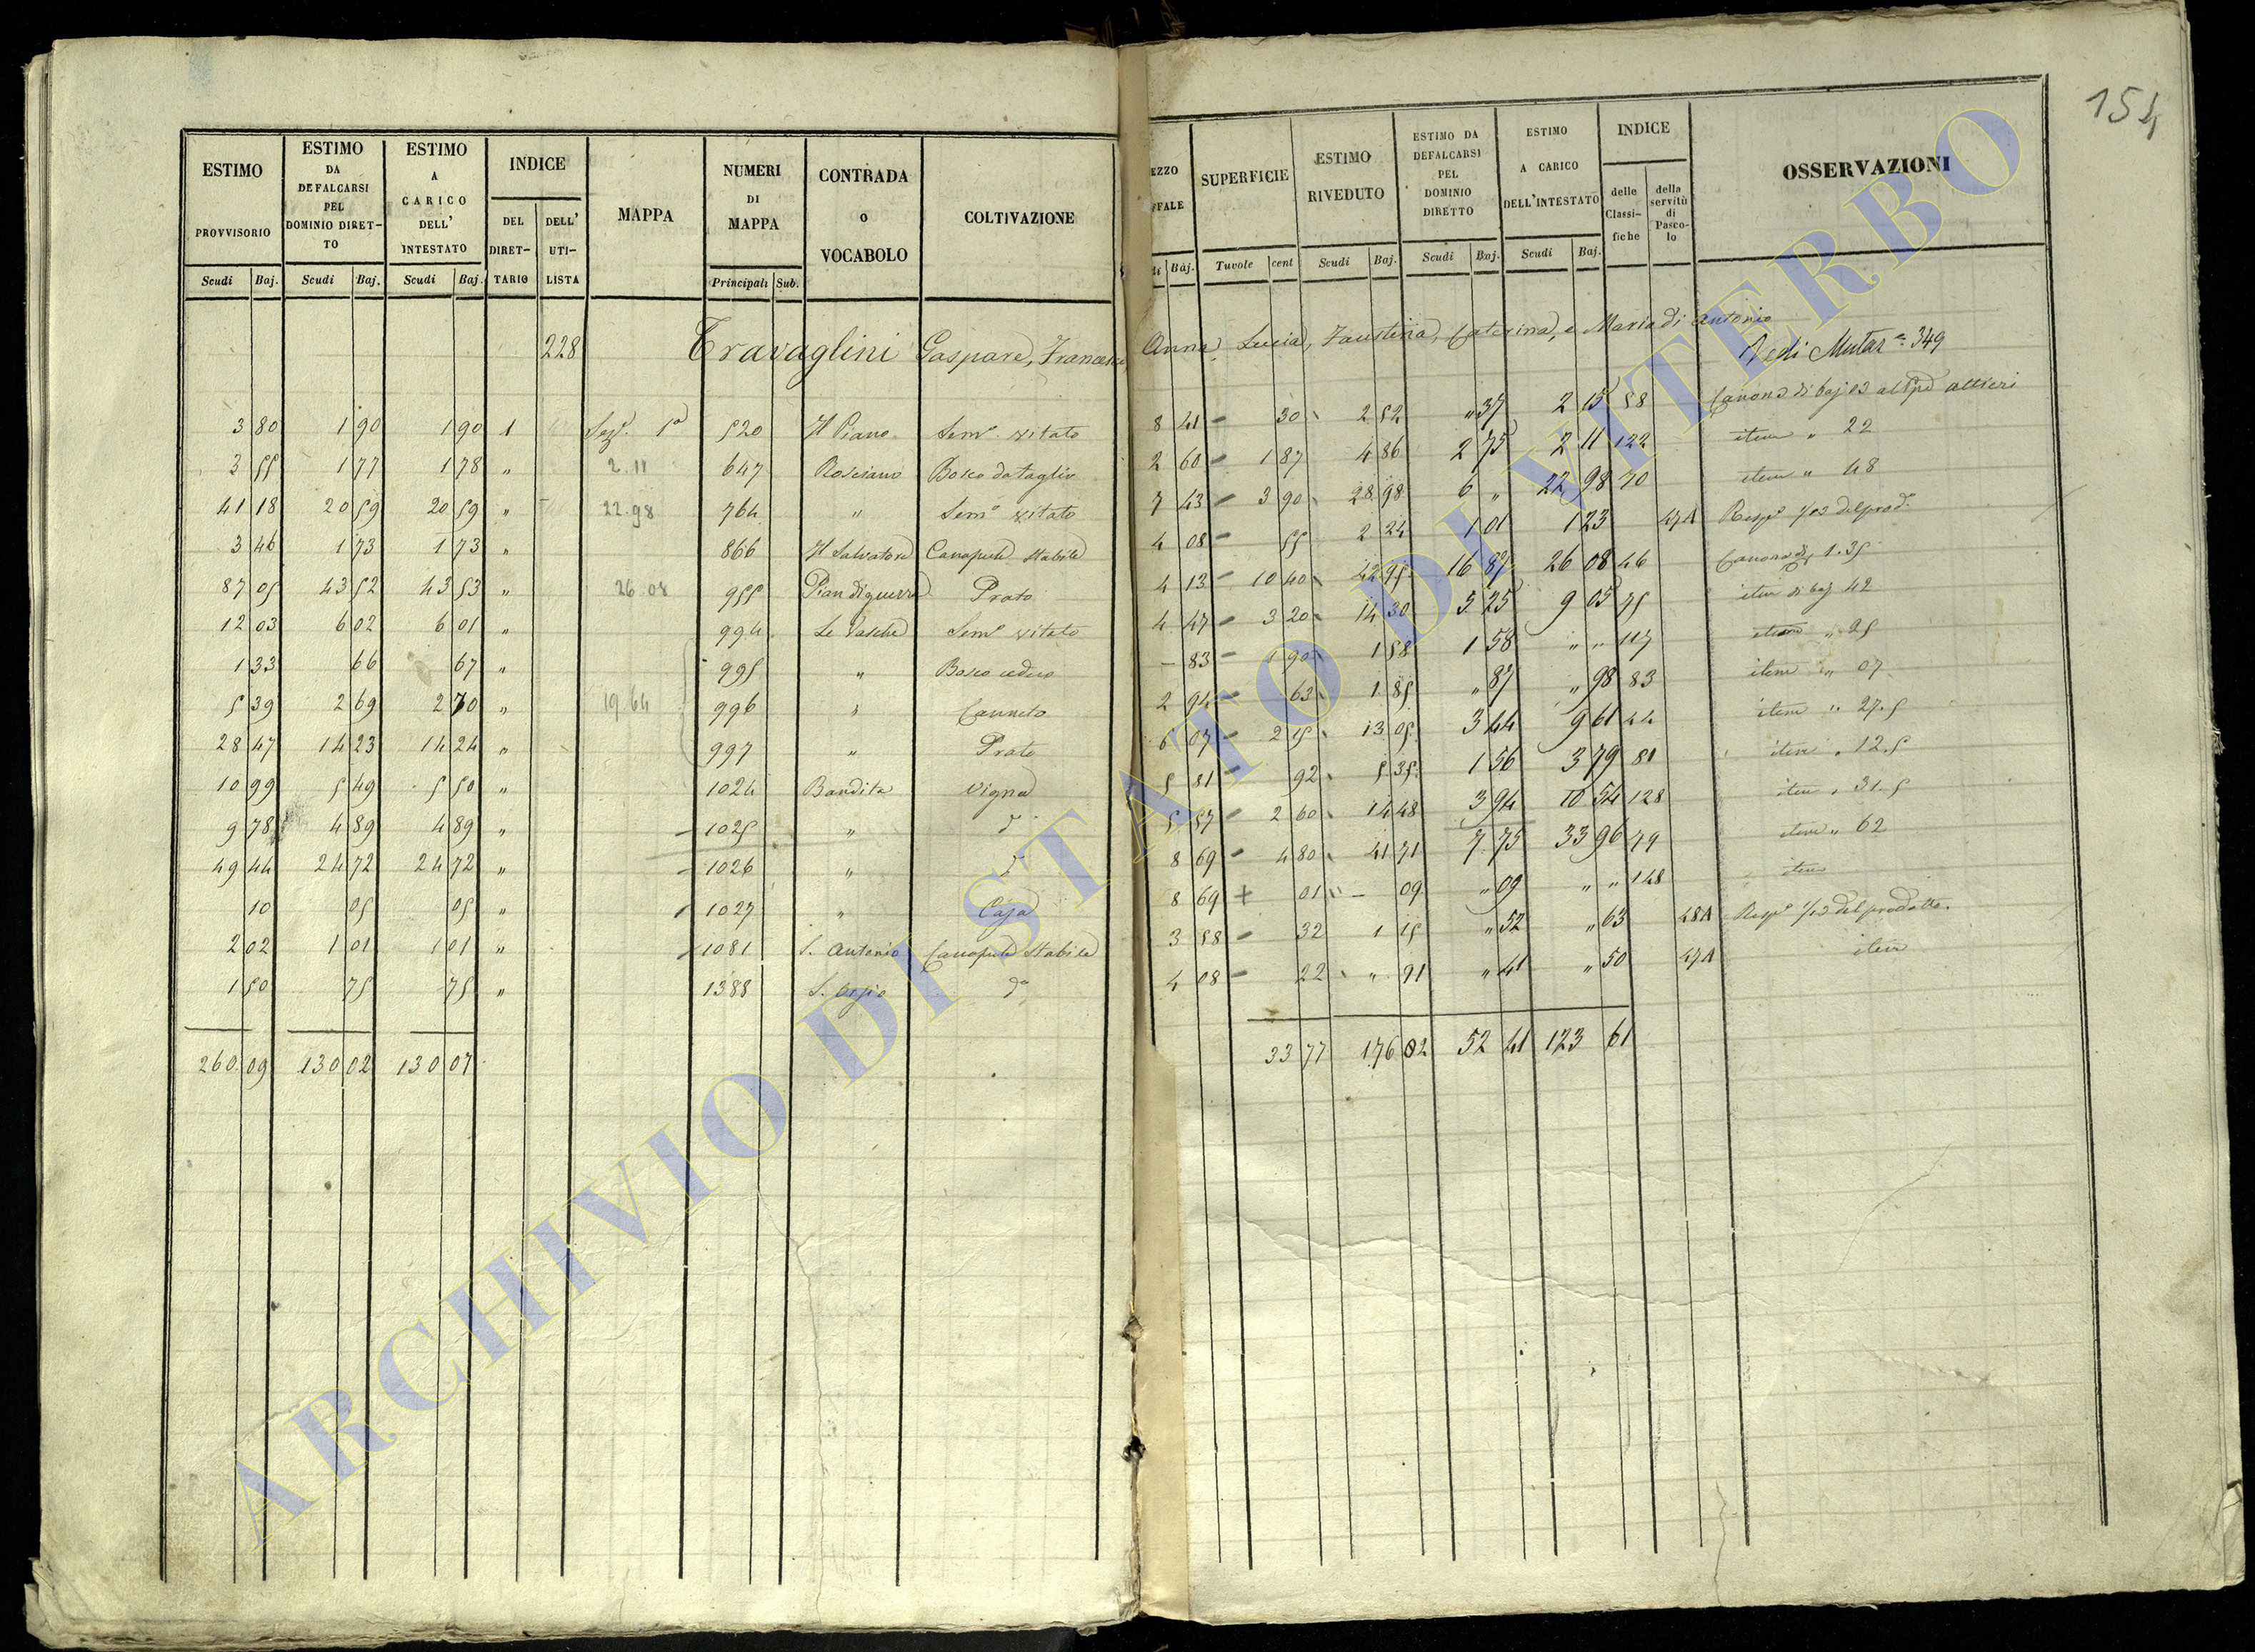 154
ESTIMO PROVVISORIO Scudi Baj.
ESTIMO DA DEFALCARSI PEL DOMINIO DIRET-TO Scudi Baj.
ESTIMO A CARICO DELL' INTESTATO Scudi Baj.
INDICE DEL DIRET-TARIO DELL' UTI-LISTA
MAPPA
NUMERI DI MAPPA Principali Sub.
CONTRADA O VOCABOLO
COLTIVAZIONE
EZZO FFALE di Baj.
SUPERFICIE Tavole cent
ESTIMO RIVEDUTO Scudi Baj.
ESTIMO DA DEFALCARSI PEL DOMINIO DIRETTO Scudi Baj.
ESTIMO A CARICO DELL'INTESTATO Scudi Baj.
INDICE delle Classi-fiche della servitù di Pasco-lo
OSSERVAZIONI
228 Travaglini Gaspare, Francesco Anna, Lucia, Faustina, Caterina, e Maria di Antonio
Vedi Mutaz.e 349
3 80 1 90 1 90 1 Sez. 1a 520 Il Piano Semo vitato 8 41 – 30 2 52 " 37 2 15 58 Canone di baj 03 al Altieri
3 55 1 77 1 78 " 2.11 647 Rosciano Bosco da taglio 2 60 – 1 87 4 86 2 75 2 11 122 item " 22
41 18 20 59 20 59 " 22.98 764 " Semo vitato 7 43 – 3 90 28 98 6 " 22 98 70 item " 48
3 46 1 73 1 73 " 866 Il Salvatore Canapule stabile 4 08 – 55 2 24 1 01 1 23 47A Rispo 1/03 del prod.
87 05 43 52 43 53 " 26.08 955 Pian di guerra Prato 4 13 – 10 40 42 95 16 87 26 08 46 Canone di 1.35
12 03 6 02 6 01 " 994 Le Vasche Semo vitato 4 47 – 3 20 14 30 5 25 9 05 75 item di baj 42
1 33 66 67 " 995 " Bosco ceduo – 83 – 1 90 1 58 1 58 " " 117 item " 25
5 39 2 69 2 70 " 19.64 996 " Canneto 2 94 – 63 1 85 " 87 " 98 83 item " 07
28 47 14 23 14 24 " 997 " Prato 6 07 – 2 15 13 05 3 44 9 61 44 item " 27.5
10 99 5 49 5 50 " 1024 Bandita Vigna 5 81 – 92 5 35 1 56 3 79 81 item " 12.5
9 78 4 89 4 89 " 1025 " d 5 57 – 2 60 14 48 3 94 10 54 128 item " 31.5
49 44 24 72 24 72 " 1026 " d 8 69 – 4 80 41 71 7 75 33 96 79 item " 62
10 05 05 " 1027 " Casa 8 69 + 01 – 09 " 09 " " 148 item
2 02 1 01 1 01 " 1081 S. Antonio Canapule Stabile 3 58 – 32 1 15 " 52 " 63 48A Rispo 1/03 del prodotto.
1 50 75 75 " 1388 S. do 4 08 – 22 " 91 " 41 " 50 47A item
260 09 130 02 130 07 33 77 176 02 52 41 123 61
ARCHIVIO DI STATO DI VITERBO